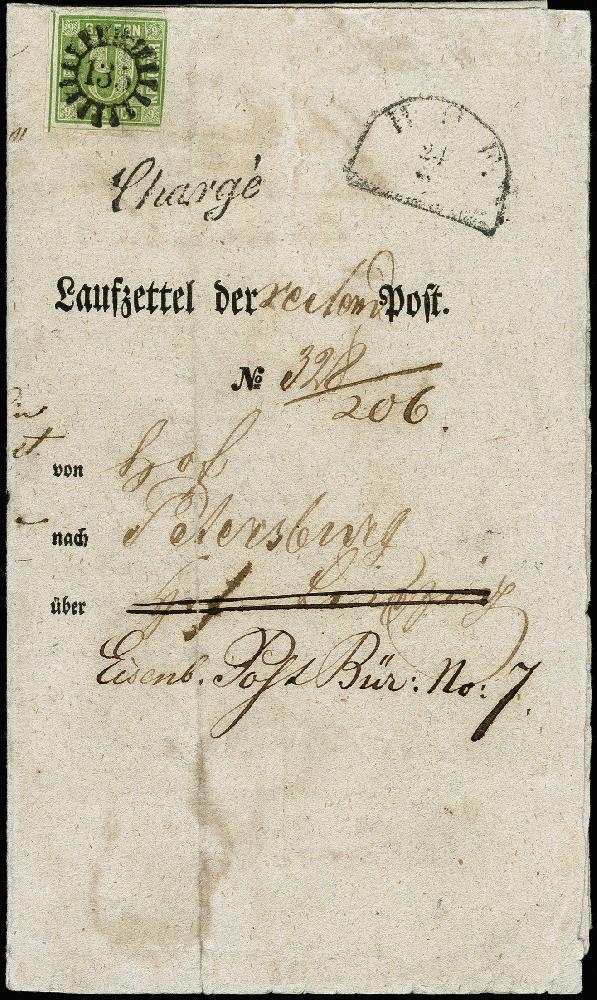 BAYERN
HOF.
24
Chargé
Laufzettel der reitend Post.
No 328/206.
von Hof
nach Petersburg
über Hof Leipzig
Eisenb. Post Bür: No: 7.